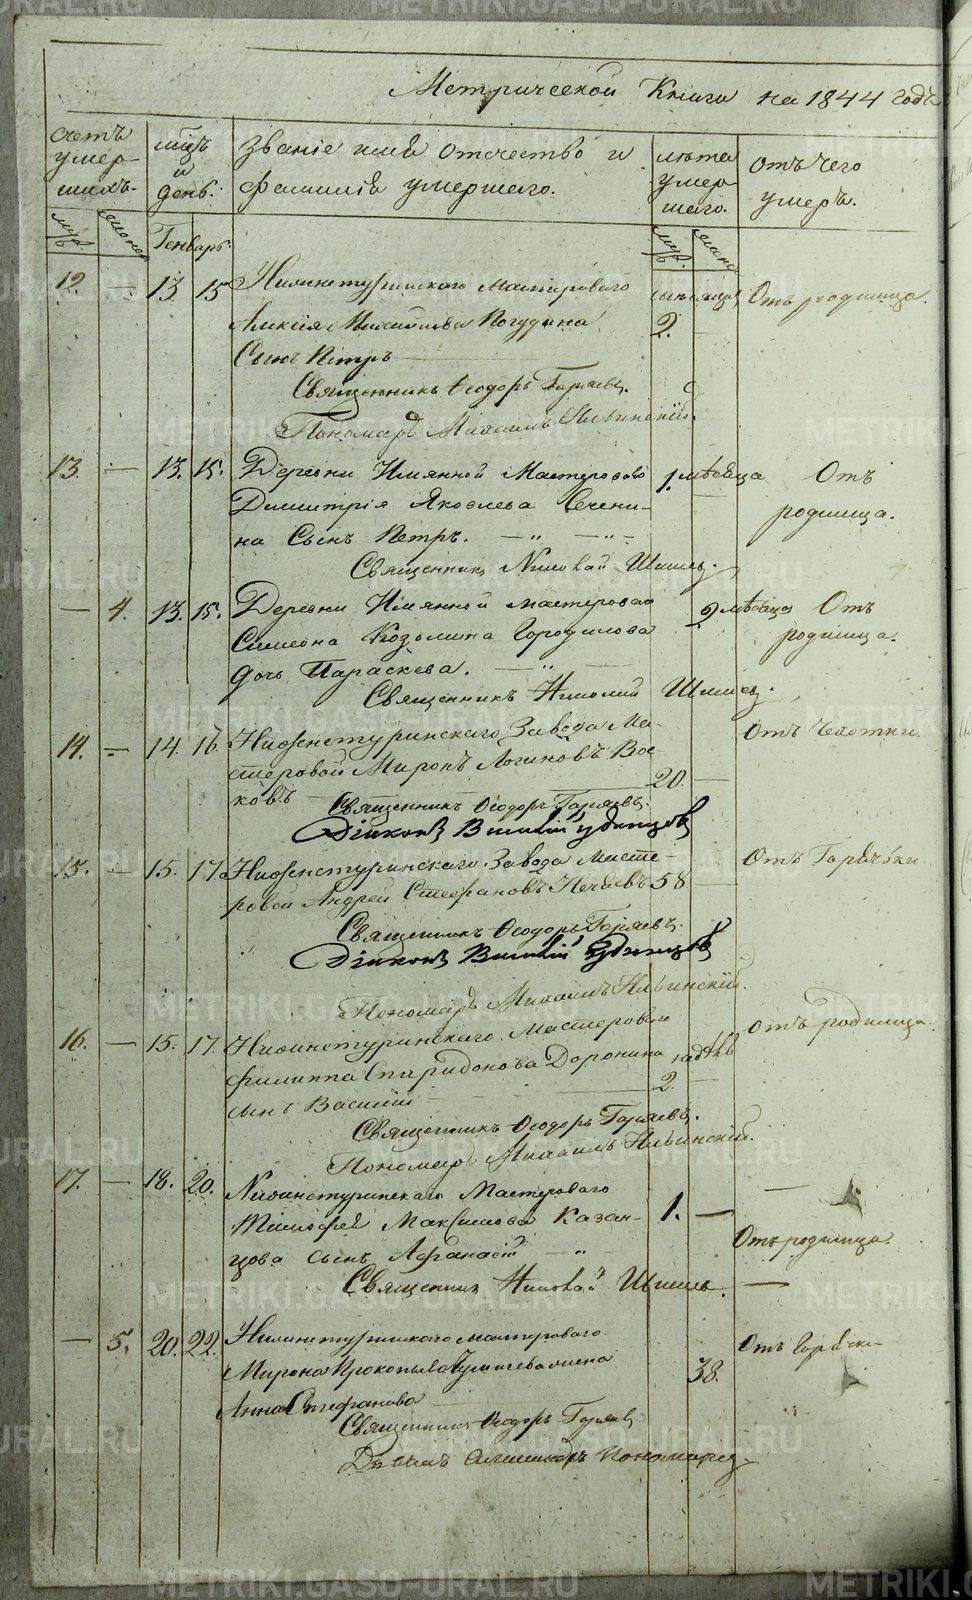 Метрической Книги на 1844 годъ
счетъ умер- шихъ.
мцъ и день.
Званіе имя отчество и фамилія умершаго.
лѣта умер шаго.
отъ чего умеръ.
муж. женск. Генварь муж. женск.
12. — 13. 15 Нижнетуринскаго Мастероваго
2. Отъ родимца.
Алексея Михайлова Погудина
Сынъ Петръ
Священникъ Ѳеодоръ Горяевъ.
Пономарь Михаилъ Ильинскій.
13. — 13. 15. Деревни Имянной Мастероваго 1. мѣсяца Отъ
Димитрія Яковлева родимца.
на Сынъ Петръ. — „ — „ —
Священникъ Николай Шишевъ.
— 4. 13. 15. Деревни Имянной мастероваго 2 мѣсяца Отъ
Симеона Козмина Городилова родимца.
дочь Параскева. — „ —
Священникъ Николай Шишевъ.
14. — 14. 16. Нижнетуринскаго Завода Ма- Отъ Чахотки.
стеровой Миронъ Логиновъ Вос-
ковъ 20. —
Священникъ Ѳеодоръ Горяевъ.
Діаконъ Василій Удинцовъ
15. — 15. 17. Нижнетуринскаго Завода Масте- Отъ Горячки.
ровой Андрей Стефановъ 58 —
Священникъ Ѳеодоръ Горяевъ.
Діаконъ Василій Удинцовъ
Пономарь Михаилъ Ильинскій.
16. — 15. 17. Нижнетуринскаго Мастероваго Отъ родимца.
Филиппа Спиридонова Доронина
сынъ Василій 2. —
Священникъ Ѳеодоръ Горяевъ.
Пономарь Михаилъ Ильинскій.
17. — 18. 20. Нижнетуринскаго Мастероваго
Тимофея Максимова Казан- 1. —
цова сынъ Афанасій — „ Отъ родимца.
Священникъ Николай Шишевъ. —
— 5. 20. 22. Нижнетуринскаго мастероваго Отъ Горячки
Мирона Прокопьева жена 38.
Анна Стефанова
Священникъ Ѳеодоръ Горяевъ
Дьячекъ Александръ Пономаревъ.
METRIKI.GASO-URAL.RU